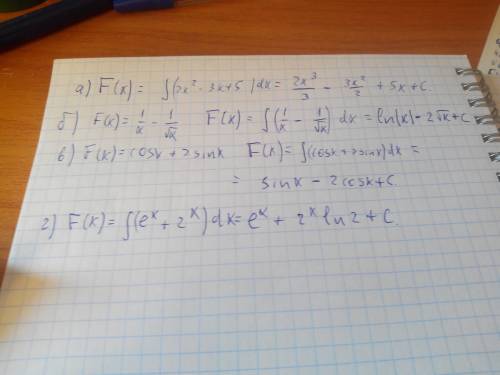 а) F(x) = ∫(2x² - 3x+5)dx = 2x³/3 - 3x²/2 + 5x + C.
б) F(x) = 1/x - 1/√x F(x) = ∫(1/x - 1/√x) dx = ln(x) - 2√x + C
в) F(x) = cosx + 2sinx F(x) = ∫(cosx + 2sinx)dx =
= sinx - 2cosx + C.
г) F(x) = ∫(eˣ + 2ˣ)dx = eˣ + 2ˣ ln2 + C.